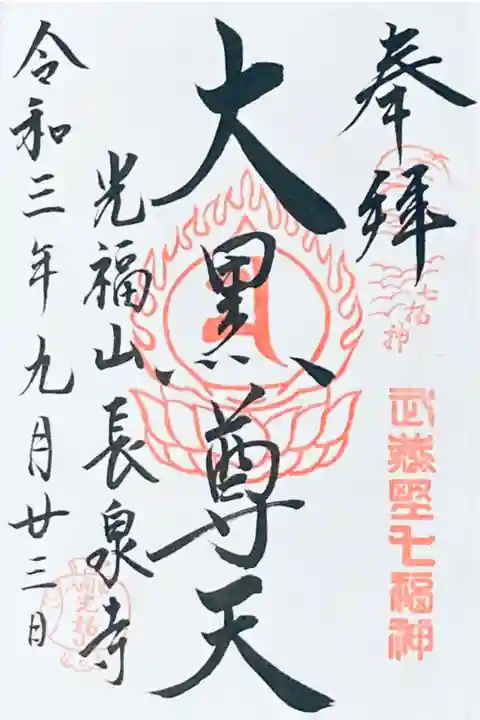 奉拝
七福神
武蔵野七福神
大黒尊天
光福山長泉寺
令和三年九月廿三日